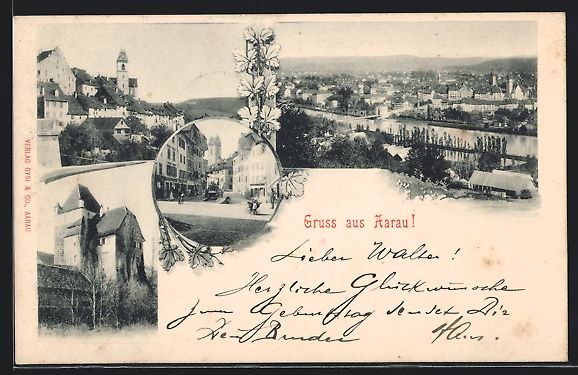 VERLAG GYSI & CO., AARAU
Gruss aus Aarau!
Lieber Walter!
Herzliche Glückwünsche
zum Geburtstag sendet Dir
Dein Bruder Hans.